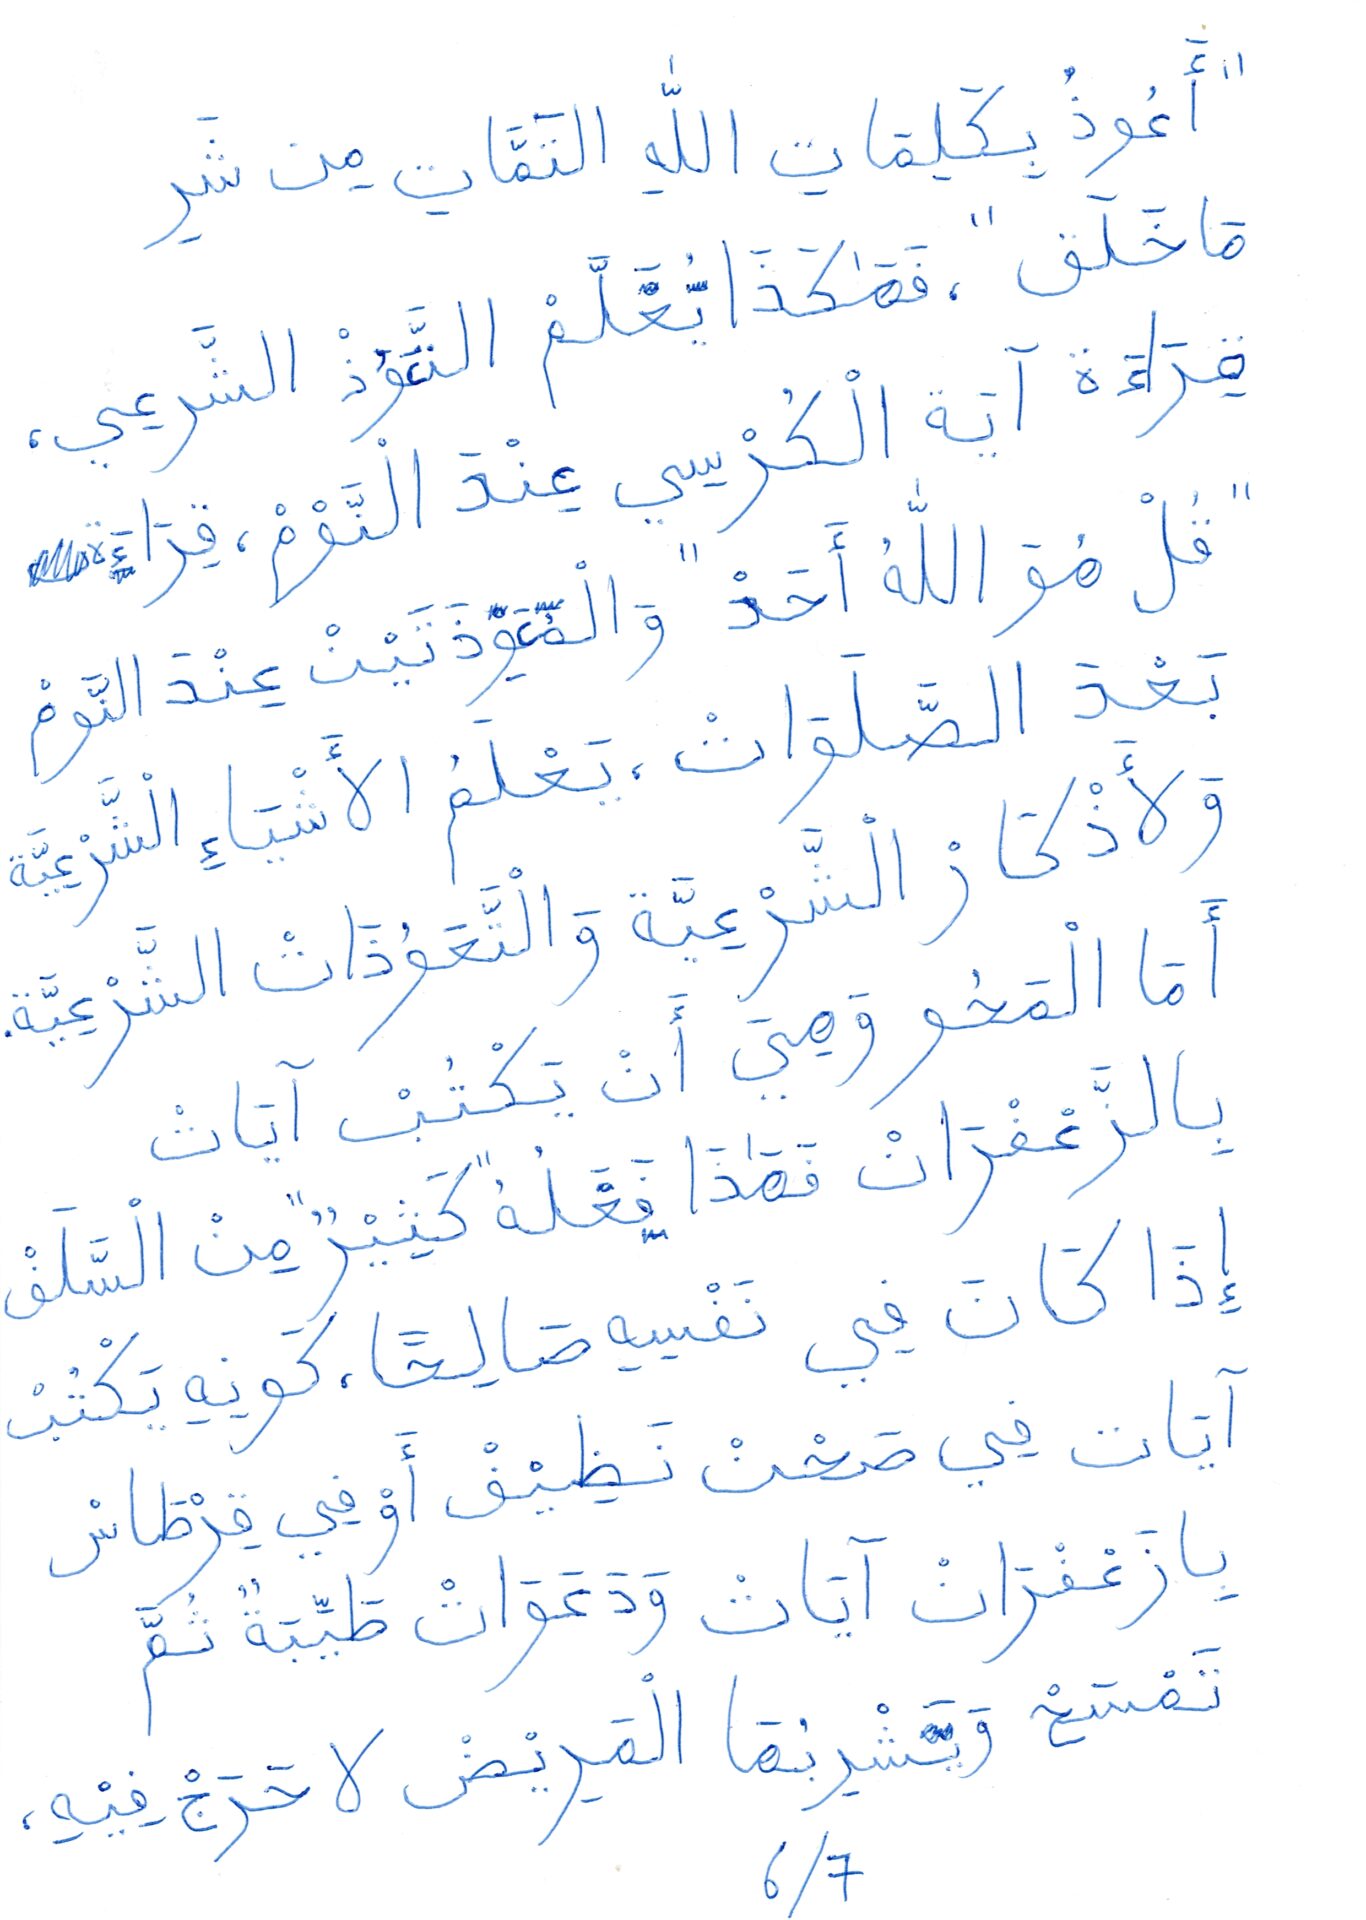 "أَعُوذُ بِكَلِمَاتِ اللّٰهِ التَمَّاتِ مِن شَرِ
مَا خَلَق"، فَهٰكَذَا يُعَلَّمْ التَّعَوُذْ الشَّرعِي،
قِرَاءَة آيَة الْكُرْسِي عِنْدَ الْنَّوْمْ، قِرَاءَة
"قُلْ هُوَ اللّٰهُ أَحَدْ" وَالْمُعَوِّذَتَيْنْ عِنْدَ النَّومْ
بَعْدَ الصَّلَوَاتْ، يَعْلَمُ الأَشْيَاءِ الْشَّرْعِيَّة
وَلأَذْكَارْ الْشَّرْعِيَّة وَالْتَّعَوُذَاتْ الشَّرْعِيَّة.
أَمَا الْمَحُو وَهِيَ أَنْ يَكْتُبْ آيَاتْ
بِالزَّعْفْرَانْ فَهٰذَا فَعَلُهُ "كَثِيْرٌ" مِنْ الْسَّلَفْ
إِذَا كَانَ فِي نَفْسِهِ صَالِحًا، كَونِهِ يَكْتُبْ
آيَات فِي صَحْنْ نَظِيْفْ أَوْ فِي قِرْطَاسْ
بِازَعْفْرَانْ آيَاتْ وَدَعَوَاتْ طَيِّبَةٌ ثُمَّ
تَمْسَحْ وَيَشْرِبُهَا الْمَرِيْضْ لا حَرَجْ فِيْهِ،
6/7